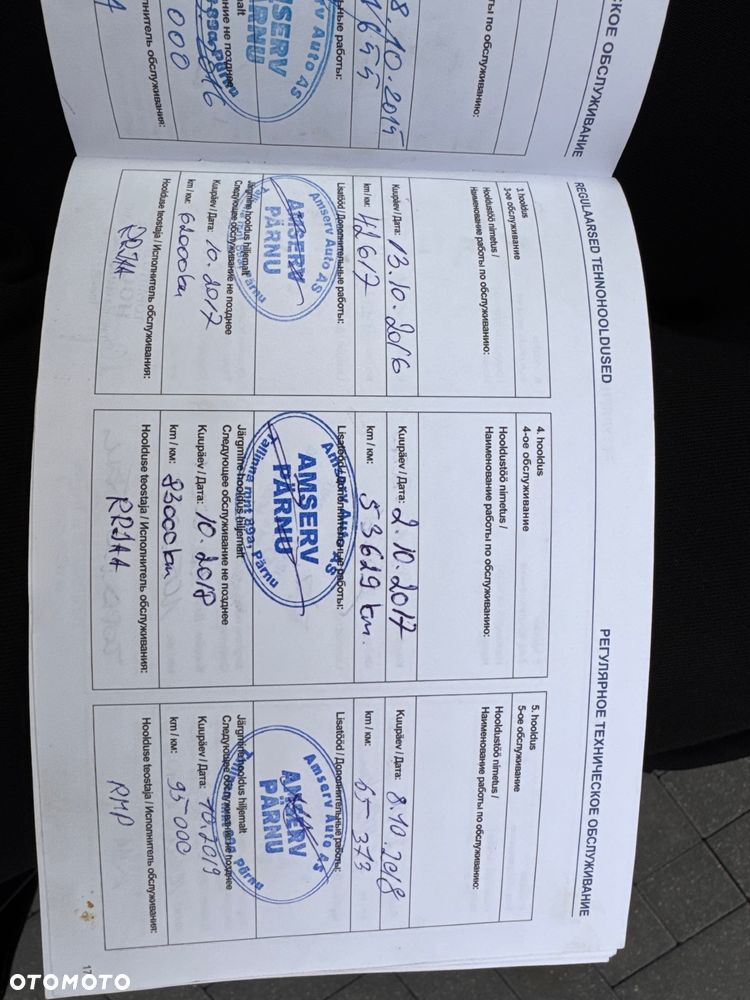 СКОЕ ОБСЛУЖИВАНИЕ
ты по обслуживанию:
8.10.2015
1655
ьные работы:
Amserv Auto AS
AMSERV
PÄRNU
89a, Pärnu
ание не позднее
2016
000
нитель обслуживания:
A
REGULAARSED TEHNOHOOLDUSED
РЕГУЛЯРНОЕ ТЕХНИЧЕСКОЕ ОБСЛУЖИВАНИЕ
3. hooldus
3-ое обслуживание
Hooldustöö nimetus /
Наименование работы по обслуживанию:
Kuupäev / Дата: 13.10.2016
km / км: 42617
Lisatööd / Дополнительные работы:
Amserv Auto AS
AMSERV
PÄRNU
mnt 89a, Pärnu
Järgmine hooldus hiljemalt
Следующее обслуживание не позднее
Kuupäev / Дата: 10.2017
km / км: 62000 km
Hoolduse teostaja / Исполнитель обслуживания:
RRJAA
4. hooldus
4-ое обслуживание
Hooldustöö nimetus /
Наименование работы по обслуживанию:
Kuupäev / Дата: 2.10.2017
km / км: 53629 km.
Lisatööd / Дополнительные работы:
Amserv Auto AS
AMSERV
PÄRNU
Tallinna mnt 89a, Pärnu
Järgmine hooldus hiljemalt
Следующее обслуживание не позднее
Kuupäev / Дата: 10.2018
km / км: 83000 km
Hoolduse teostaja / Исполнитель обслуживания:
RRJAA
5. hooldus
5-ое обслуживание
Hooldustöö nimetus /
Наименование работы по обслуживанию:
Kuupäev / Дата: 8.10.2018
km / км: 65 373
Lisatööd / Дополнительные работы:
Amserv Auto AS
AMSERV
PÄRNU
Pärnu
Järgmine hooldus hiljemalt
Следующее обслуживание не позднее
Kuupäev / Дата: 10.2019
km / км: 95000
Hoolduse teostaja / Исполнитель обслуживания:
RMP
17
OTOMOTO